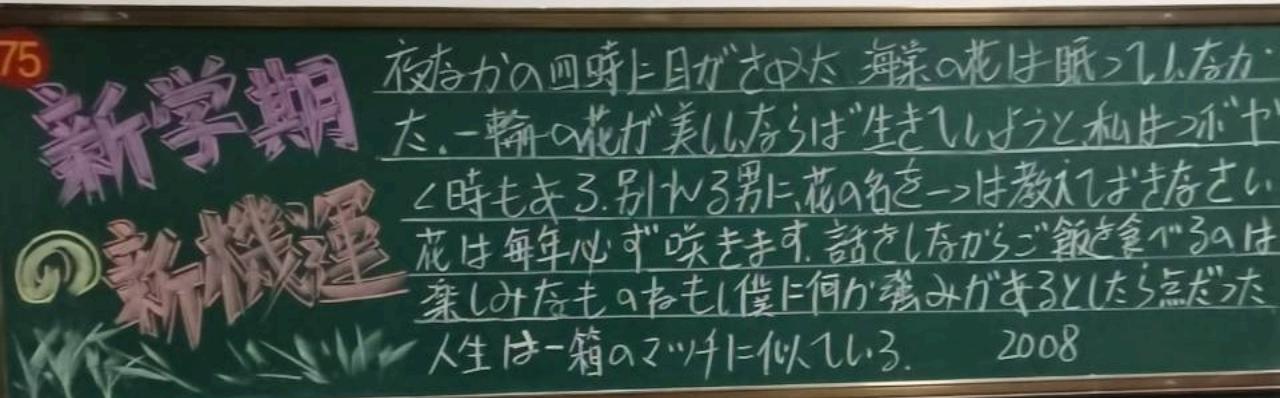 75
新学期
の新機運
夜なかの四時に目がさめた 海棠の花は眠っていなか
た.一輪の花が美しいならば生きていようと,私はつボヤ
く時もある.別れる男に,花の名を一つは教えておきなさい
花は毎年必ず咲きます.話をしながらご飯を食べるのは
楽しみなものねもし僕に何か強みがあるとしたら点だった
人生は一箱のマッチに似ている. 2008